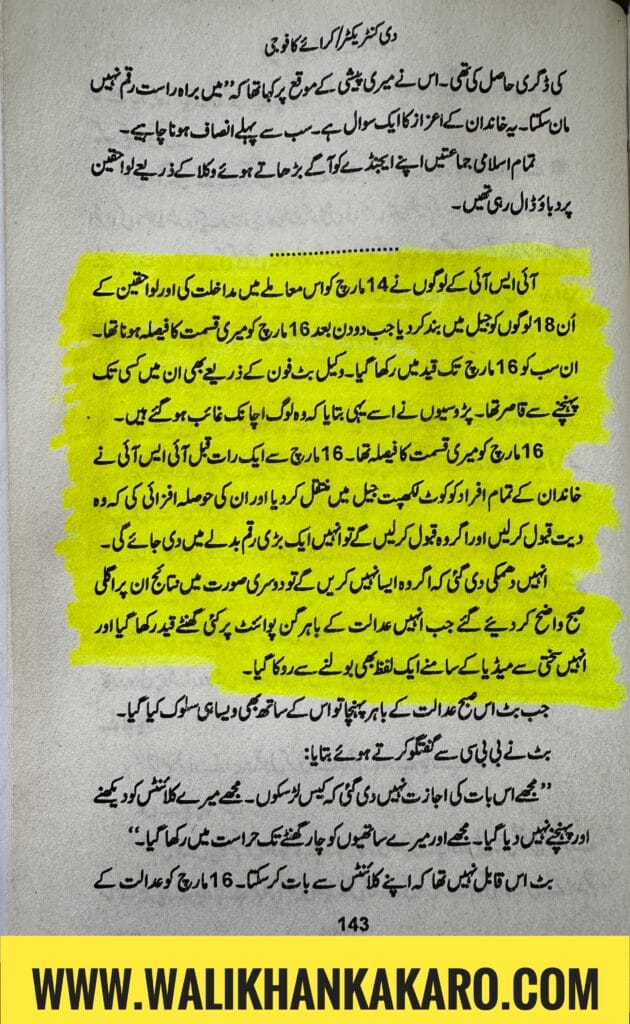 دی کنٹریکٹر/کرائے کا فوجی
کی ڈگری حاصل کی تھی۔ اس نے میری پیشی کے موقع پر کہا تھا کہ ”میں براہ راست رقم نہیں
مان سکتا۔ یہ خاندان کے اعزاز کا ایک سوال ہے۔ سب سے پہلے انصاف ہونا چاہیے۔
تمام اسلامی جماعتیں اپنے ایجنڈے کو آگے بڑھاتے ہوئے وکلا کے ذریعے لواحقین
پر دباؤ ڈال رہی تھیں۔
آئی ایس آئی کے لوگوں نے 14 مارچ کو اس معاملے میں مداخلت کی اور لواحقین کے
اُن 18 لوگوں کو جیل میں بند کر دیا جب دو دن بعد 16 مارچ کو میری قسمت کا فیصلہ ہونا تھا۔
ان سب کو 16 مارچ تک قید میں رکھا گیا۔ وکیل بٹ فون کے ذریعے بھی ان میں کسی تک
پہنچنے سے قاصر تھا۔ پڑوسیوں نے اسے یہی بتایا کہ وہ لوگ اچانک غائب ہو گئے ہیں۔
16 مارچ کو میری قسمت کا فیصلہ تھا۔ 16 مارچ سے ایک رات قبل آئی ایس آئی نے
خاندان کے تمام افراد کو کوٹ لکھپت جیل میں منتقل کر دیا اور ان کی حوصلہ افزائی کی کہ وہ
دیت قبول کر لیں اور اگر وہ قبول کر لیں گے تو انہیں ایک بڑی رقم بدلے میں دی جائے گی۔
انہیں دھمکی دی گئی کہ اگر وہ ایسا نہیں کریں گے تو دوسری صورت میں نتائج ان پر اگلی
صبح واضح کر دیئے گئے جب انہیں عدالت کے باہر گن پوائنٹ پر کئی گھنٹے قید رکھا گیا اور
انہیں سختی سے میڈیا کے سامنے ایک لفظ بھی بولنے سے روکا گیا۔
جب بٹ اس صبح عدالت کے باہر پہنچا تو اس کے ساتھ بھی ویسا ہی سلوک کیا گیا۔
بٹ نے بی بی سی سے گفتگو کرتے ہوئے بتایا:
”مجھے اس بات کی اجازت نہیں دی گئی کہ کیس لڑ سکوں۔ مجھے میرے کلائنٹس کو دیکھنے
اور پہنچنے نہیں دیا گیا۔ مجھے اور میرے ساتھیوں کو چار گھنٹے تک حراست میں رکھا گیا۔“
بٹ اس قابل نہیں تھا کہ اپنے کلائنٹس سے بات کر سکتا۔ 16 مارچ کو عدالت کے
143
WWW.WALIKHANKAKARO.COM